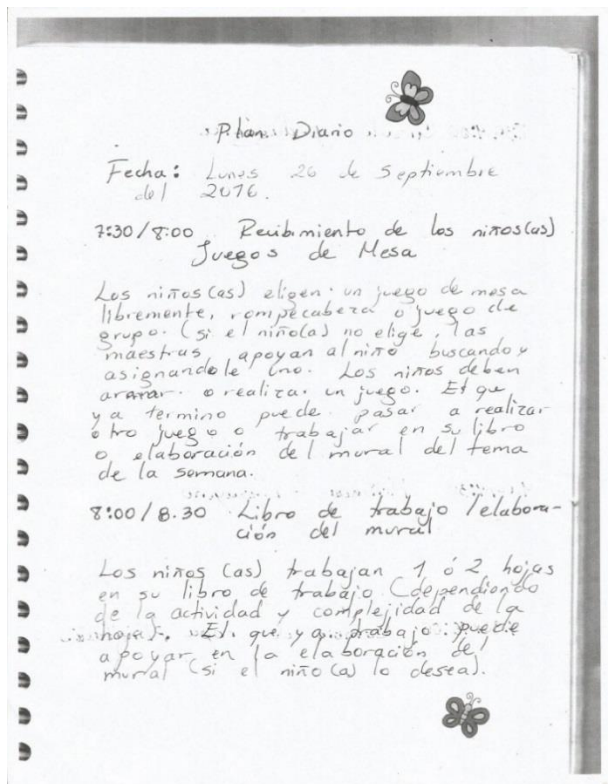 Plan Diario
Fecha: Lunes 26 de Septiembre
del 2016.
7:30/8:00 Recibimiento de los niños(as)
Juegos de Mesa
Los niños(as) eligen un juego de mesa
libremente, rompecabeza o juego de
grupo. (si el niño(a) no elige, las
maestras apoyan al niño buscando y
asignandole uno. Los niños deben
armar o realizar un juego. El que
ya termino puede pasar a realizar
otro juego o trabajar en su libro
o elaboración del mural del tema
de la semana.
8:00/8.30 Libro de trabajo /elabora-
ción del mural
Los niños (as) trabajan 1 ó 2 hojas
en su libro de trabajo (dependiendo
de la actividad y complejidad de la
hoja). El que ya trabajo puede
apoyar en la elaboración del
mural (si el niño(a) lo desea).